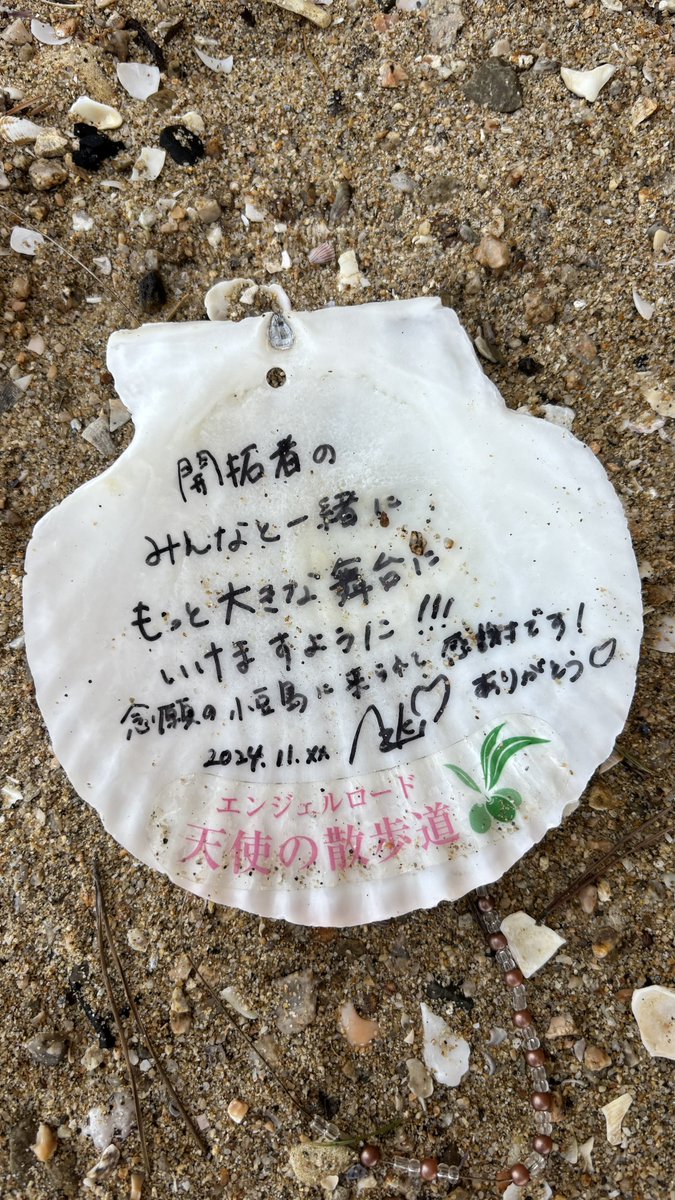 開拓者の
みんなと一緒に
もっと大きな舞台に
いけますように!!!
念願の小豆島に来られて感謝です!
ありがとう♡
2024.11.xx
エンジェルロード
天使の散歩道